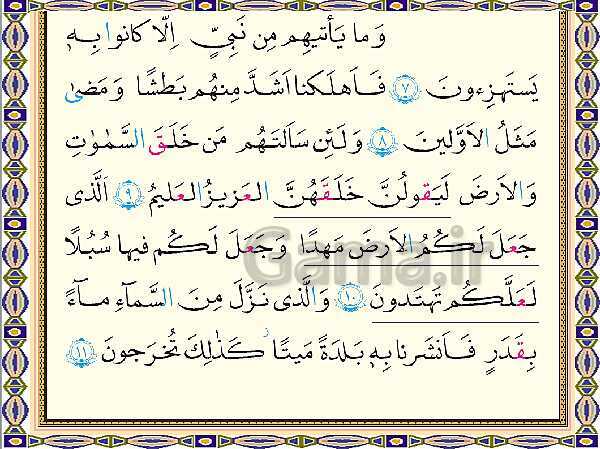 وَ ما يَأتيهِم مِن نَبِيٍّ اِلّا كانوا بِهٖ
يَستَهزِءونَ ﴿٧﴾ فَاَهلَكنا اَشَدَّ مِنهُم بَطشًا وَ مَضىٰ
مَثَلُ الاَوَّلينَ ﴿٨﴾ وَ لَئِن سَاَلتَهُم مَن خَلَقَ السَّمٰوٰتِ
وَ الاَرضَ لَيَقولُنَّ خَلَقَهُنَّ العَزيزُ العَليمُ ﴿٩﴾ اَلَّذى
جَعَلَ لَكُمُ الاَرضَ مَهدًا وَ جَعَلَ لَكُم فيها سُبُلًا
Gama.ir
لَعَلَّكُم تَهتَدونَ ﴿١٠﴾ وَ الَّذى نَزَّلَ مِنَ السَّماۤءِ ماۤءً
بِقَدَرٍ فَاَنشَرنا بِهٖ بَلدَةً مَيتًا كَذٰلِكَ تُخرَجونَ ﴿١١﴾